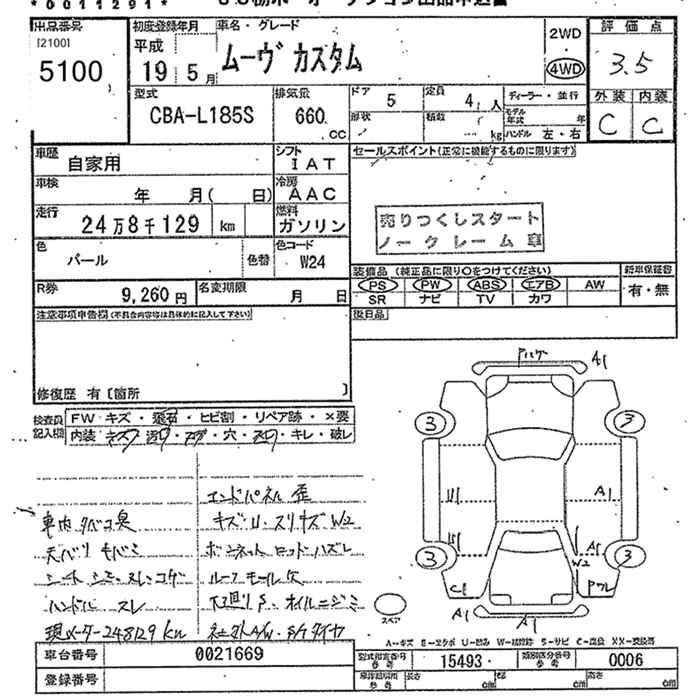 *0011291*
出品番号
[2100]
5100
初度登録年月
平成
19 5月
車名・グレード
ムーヴ カスタム
2WD
4WD
評価点
3.5
外装 内装
C C
型式
CBA-L185S
排気量
660 CC
ドア 5
定員 4 人
形状
積数 kg
ディーラー・並行
モデル年式 年
ハンドル 左・右
車歴
自家用
シフト
IAT
セールスポイント(正常に機能するものに限ります)
車検
年 月( 日)
冷房
AAC
走行
24万8千129 km
燃料
ガソリン
売りつくしスタート
ノークレーム車
色
パール
色替
色コード
W24
装備品 (純正品に限り○をつけてください)
新車保証書
PS PW ABS エアB AW
有・無
SR ナビ TV カワ
R券
9,260円
名変期限
月 日
注意事項申告欄(不具合内容等は具体的に記入して下さい)
後日品
修復歴 有〔箇所 〕
検査員記入欄
FW キズ・飛石・ヒビ割・リペア跡・×要
内装・キズ・汚・コゲ・穴・スレ・キレ・破レ
エンドパネル 歪
車内 タバコ臭
キズ・U・スリキズ W2
ボンネット ロッド ハズレ
シート シミ・スレ・コゲ
ルーフモール欠
ハンドル スレ
下廻りS・オイルニジミ
現メーター248129km
社外A/W・S/Tタイヤ
A1
3 3
A1
A1
W2
3 3
C1
A1 A1
スペア
A-キズ E-エクボ U-凹み W-補修跡 S-サビ C-腐蝕 XX-交換済
車台番号
0021669
型式指定番号 参考
15493
類別区分番号 参考
0006
登録番号
長さ cm
幅 cm
高さ cm